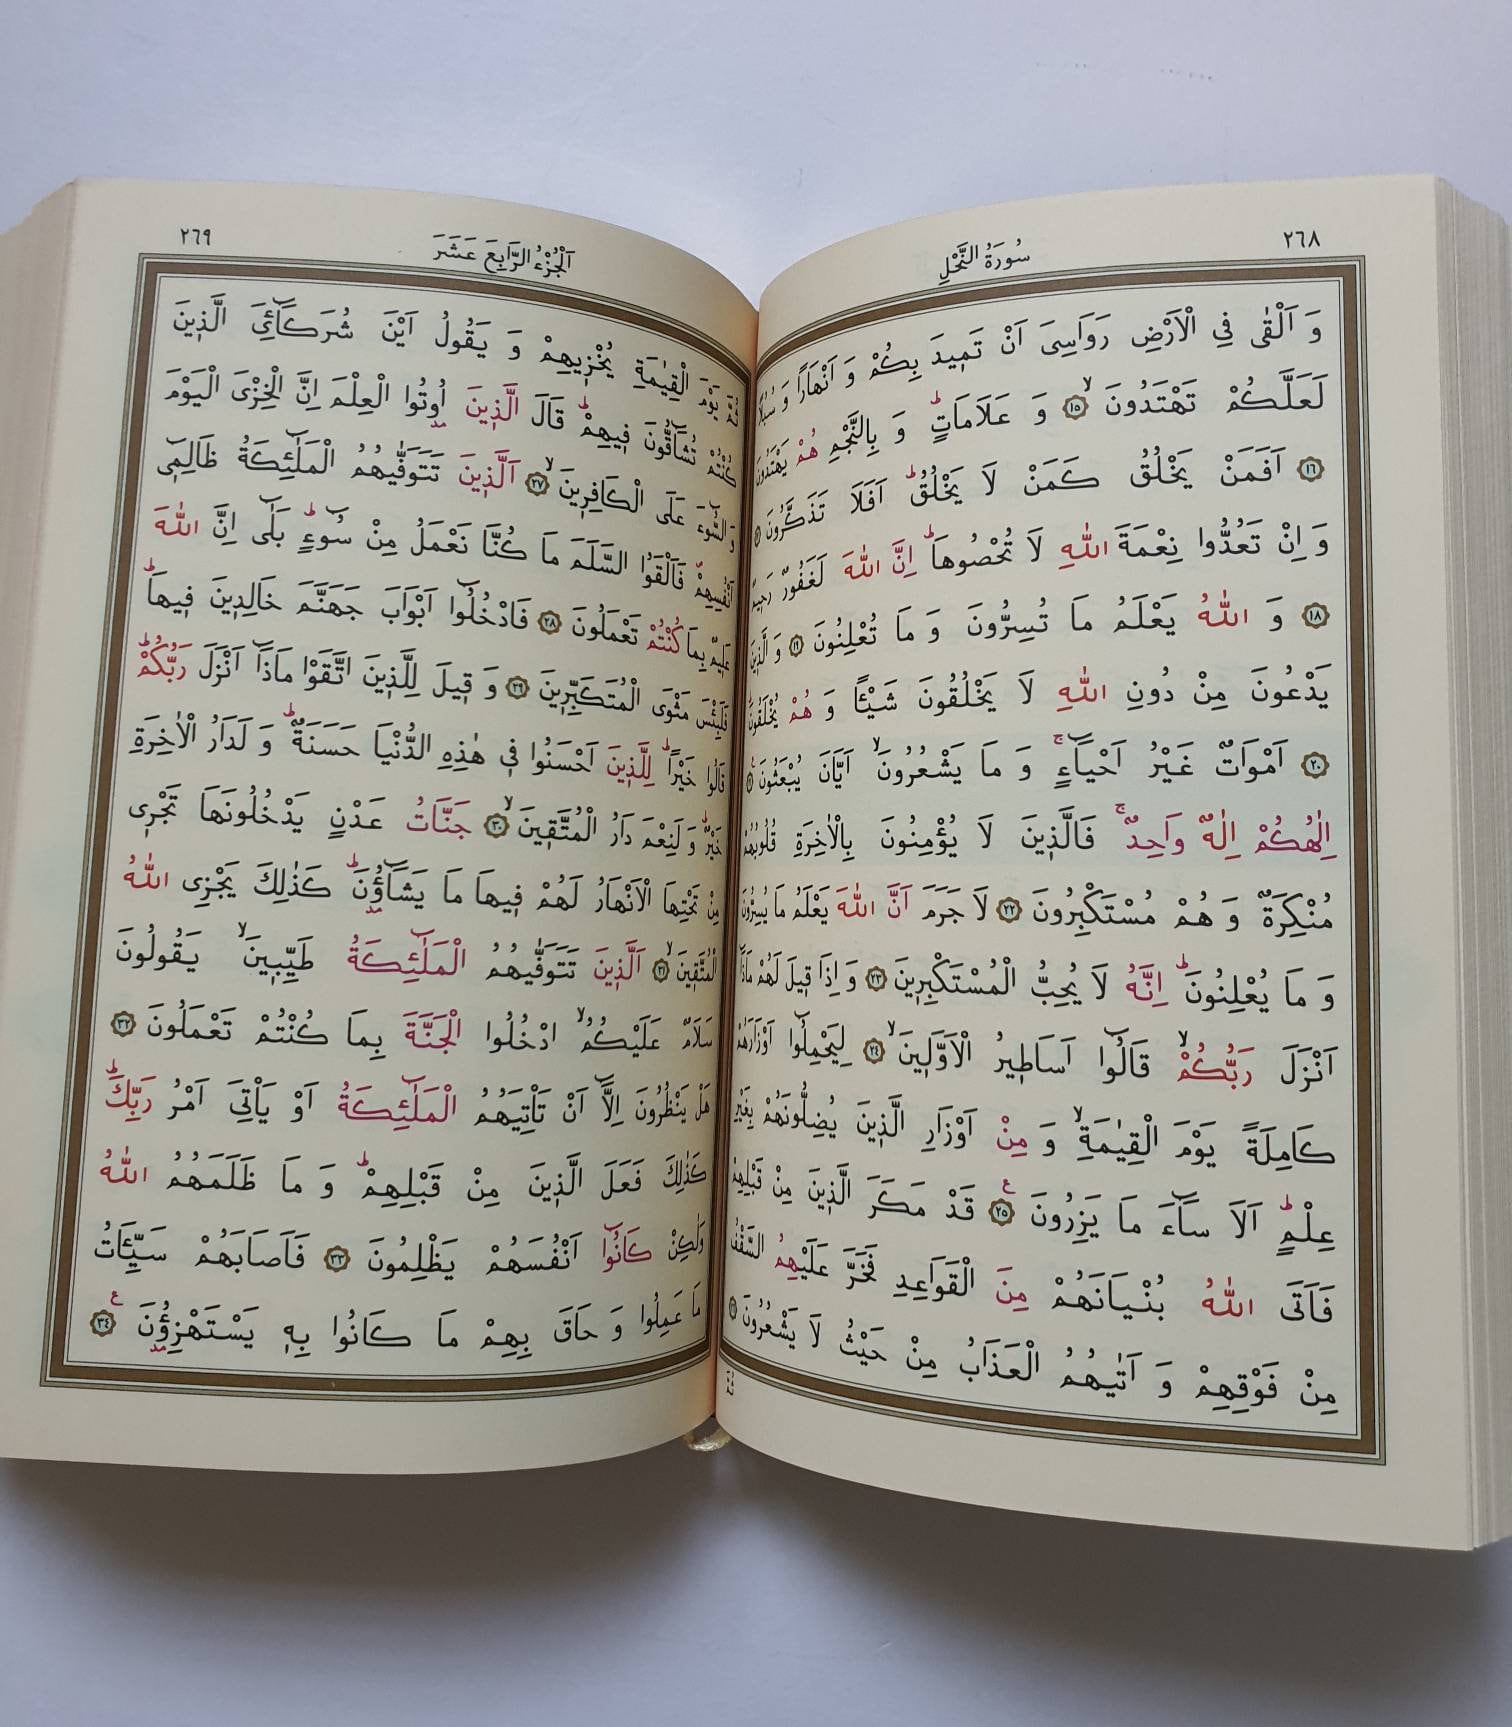 ٢٦٨
سُورَةُ النَّحْلِ
وَ اَلْقٰى فِى الْاَرْضِ رَوَاسِىَ اَنْ تَمٖيدَ بِكُمْ وَ اَنْهَارًا وَ سُبُلًا
لَعَلَّكُمْ تَهْتَدُونَۙ ﴿١٥﴾ وَ عَلَامَاتٍؕ وَ بِالنَّجْمِ هُمْ يَهْتَدُونَ
﴿١٦﴾ اَفَمَنْ يَخْلُقُ كَمَنْ لَا يَخْلُقُؕ اَفَلَا تَذَكَّرُونَ ﴿١٧﴾
وَ اِنْ تَعُدُّوا نِعْمَةَ اللّٰهِ لَا تُحْصُوهَاؕ اِنَّ اللّٰهَ لَغَفُورٌ رَحٖيمٌ
﴿١٨﴾ وَ اللّٰهُ يَعْلَمُ مَا تُسِرُّونَ وَ مَا تُعْلِنُونَ ﴿١٩﴾ وَ الَّذٖينَ
يَدْعُونَ مِنْ دُونِ اللّٰهِ لَا يَخْلُقُونَ شَيْئًا وَ هُمْ يُخْلَقُونَؕ
﴿٢٠﴾ اَمْوَاتٌ غَيْرُ اَحْيَٓاءٍۚ وَ مَا يَشْعُرُونَۙ اَيَّانَ يُبْعَثُونَ ﴿٢١﴾
اِلٰهُكُمْ اِلٰهٌ وَاحِدٌۚ فَالَّذٖينَ لَا يُؤْمِنُونَ بِالْاٰخِرَةِ قُلُوبُهُمْ
مُنْكِرَةٌ وَ هُمْ مُسْتَكْبِرُونَ ﴿٢٢﴾ لَا جَرَمَ اَنَّ اللّٰهَ يَعْلَمُ مَا يُسِرُّونَ
وَ مَا يُعْلِنُونَؕ اِنَّهُ لَا يُحِبُّ الْمُسْتَكْبِرٖينَ ﴿٢٣﴾ وَ اِذَا قٖيلَ لَهُمْ مَاذَٓا
اَنْزَلَ رَبُّكُمْۙ قَالُٓوا اَسَاطٖيرُ الْاَوَّلٖينَۙ ﴿٢٤﴾ لِيَحْمِلُٓوا اَوْزَارَهُمْ
كَامِلَةً يَوْمَ الْقِيٰمَةِۙ وَ مِنْ اَوْزَارِ الَّذٖينَ يُضِلُّونَهُمْ بِغَيْرِ
عِلْمٍؕ اَلَا سَٓاءَ مَا يَزِرُونَ ﴿٢٥﴾ ع قَدْ مَكَرَ الَّذٖينَ مِنْ قَبْلِهِمْ
فَاَتَى اللّٰهُ بُنْيَانَهُمْ مِنَ الْقَوَاعِدِ فَخَرَّ عَلَيْهِمُ السَّقْفُ
مِنْ فَوْقِهِمْ وَ اَتٰيهُمُ الْعَذَابُ مِنْ حَيْثُ لَا يَشْعُرُونَ ﴿٢٦﴾
ثُمَّ
٢٦٩
اَلْجُزْءُ الرَّابِعَ عَشَرَ
ثُمَّ يَوْمَ الْقِيٰمَةِ يُخْزٖيهِمْ وَ يَقُولُ اَيْنَ شُرَكَٓائِىَ الَّذٖينَ
كُنْتُمْ تُشَٓاقُّونَ فٖيهِمْؕ قَالَ الَّذٖينَ اُوتُوا الْعِلْمَ اِنَّ الْخِزْىَ الْيَوْمَ
وَ السُّٓوءَ عَلَى الْكَافِرٖينَۙ ﴿٢٧﴾ اَلَّذٖينَ تَتَوَفّٰيهُمُ الْمَلٰٓئِكَةُ ظَالِمٖٓى
اَنْفُسِهِمْࣕ فَاَلْقَوُا السَّلَمَ مَا كُنَّا نَعْمَلُ مِنْ سُٓوءٍؕ بَلٰٓى اِنَّ اللّٰهَ
عَلٖيمٌ بِمَا كُنْتُمْ تَعْمَلُونَ ﴿٢٨﴾ فَادْخُلُٓوا اَبْوَابَ جَهَنَّمَ خَالِدٖينَ فٖيهَاؕ
فَلَبِئْسَ مَثْوَى الْمُتَكَبِّرٖينَ ﴿٢٩﴾ وَ قٖيلَ لِلَّذٖينَ اتَّقَوْا مَاذَٓا اَنْزَلَ رَبُّكُمْؕ
قَالُوا خَيْرًاؕ لِلَّذٖينَ اَحْسَنُوا فٖى هٰذِهِ الدُّنْيَا حَسَنَةٌؕ وَ لَدَارُ الْاٰخِرَةِ
خَيْرٌؕ وَ لَنِعْمَ دَارُ الْمُتَّقٖينَۙ ﴿٣٠﴾ جَنَّاتُ عَدْنٍ يَدْخُلُونَهَا تَجْرٖى
مِنْ تَحْتِهَا الْاَنْهَارُ لَهُمْ فٖيهَا مَا يَشَٓاؤُنَؕ كَذٰلِكَ يَجْزِى اللّٰهُ
الْمُتَّقٖينَۙ ﴿٣١﴾ اَلَّذٖينَ تَتَوَفّٰيهُمُ الْمَلٰٓئِكَةُ طَيِّبٖينَۙ يَقُولُونَ
سَلَامٌ عَلَيْكُمُۙ ادْخُلُوا الْجَنَّةَ بِمَا كُنْتُمْ تَعْمَلُونَ ﴿٣٢﴾
هَلْ يَنْظُرُونَ اِلَّٓا اَنْ تَاْتِيَهُمُ الْمَلٰٓئِكَةُ اَوْ يَاْتِىَ اَمْرُ رَبِّكَؕ
كَذٰلِكَ فَعَلَ الَّذٖينَ مِنْ قَبْلِهِمْؕ وَ مَا ظَلَمَهُمُ اللّٰهُ
وَلٰكِنْ كَانُٓوا اَنْفُسَهُمْ يَظْلِمُونَ ﴿٣٣﴾ فَاَصَابَهُمْ سَيِّئَاتُ
مَا عَمِلُوا وَ حَاقَ بِهِمْ مَا كَانُوا بِهٖ يَسْتَهْزِؤُنَ ﴿٣٤﴾ ع